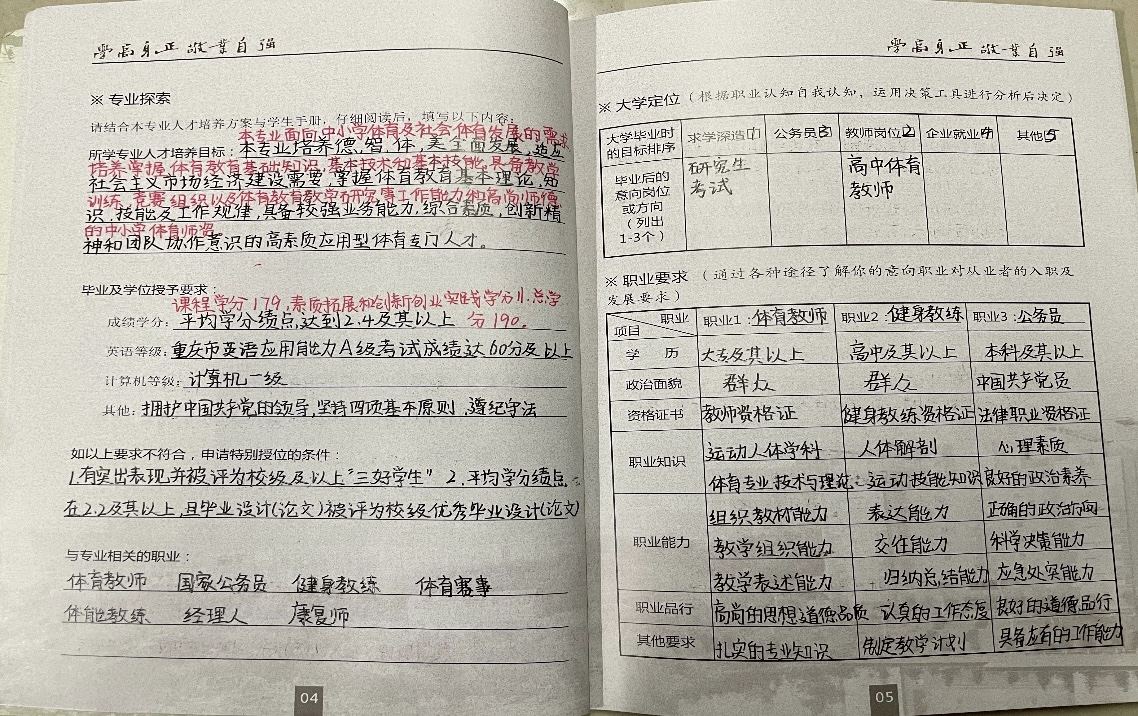 学高身正 敬业自强
※ 专业探索
请结合本专业人才培养方案与学生手册，仔细阅读后，填写以下内容：
本专业面向中小学体育及社会体育发展的需求
所学专业人才培养目标：本专业培养德，智，体，美全面发展，适应
培养掌握体育教育基础知识，基本技术和基本技能，具备教学
社会主义市场经济建设需要，掌握体育教育基本理论，知
训练，竞赛组织以及体育教育教学研究等工作能力和高尚师德
识，技能及工作规律，具备较强业务能力，综合素质，创新精
的中小学体育师资
神和团队协作意识的高素质应用型体育专门人才。
毕业及学位授予要求：
课程学分179，素质拓展和创新创业实践学分11，总学
成绩学分：平均学分绩点，达到2.4及其以上 分190。
英语等级：重庆市英语应用能力A级考试成绩达60分及以上
计算机等级：计算机一级
其他：拥护中国共产党的领导，坚持四项基本原则，遵纪守法
如以上要求不符合，申请特别授位的条件：
1.有突出表现并被评为校级及以上“三好学生” 2.平均学分绩点
在2.2及其以上，且毕业设计(论文)被评为校级优秀毕业设计(论文)
与专业相关的职业：
体育教师 国家公务员 健身教练 体育赛事
体能教练 经理人 康复师
04
学高身正 敬业自强
※ 大学定位（根据职业认知自我认知，运用决策工具进行分析后决定）
大学毕业时的目标排序 求学深造(1) 公务员(3) 教师岗位(2) 企业就业(4) 其他(5)
毕业后的意向岗位或方向（列出1-3个） 研究生考试 高中体育教师
※ 职业要求（通过各种途径了解你的意向职业对从业者的入职及
发展要求）
项目 职业 职业1：体育教师 职业2：健身教练 职业3：公务员
学 历 大专及其以上 高中及其以上 本科及其以上
政治面貌 群众 群众 中国共产党员
资格证书 教师资格证 健身教练资格证 法律职业资格证
职业知识 运动人体学科 人体解剖 心理素质
体育专业技术与理论 运动技能知识 良好的政治素养
组织教材能力 表达能力 正确的政治方向
职业能力 教学组织能力 交往能力 科学决策能力
教学表述能力 归纳总结能力 应急处突能力
职业品行 高尚的思想道德品质 认真的工作态度 良好的道德品行
其他要求 扎实的专业知识 制定教学计划 具备应有的工作能力
05